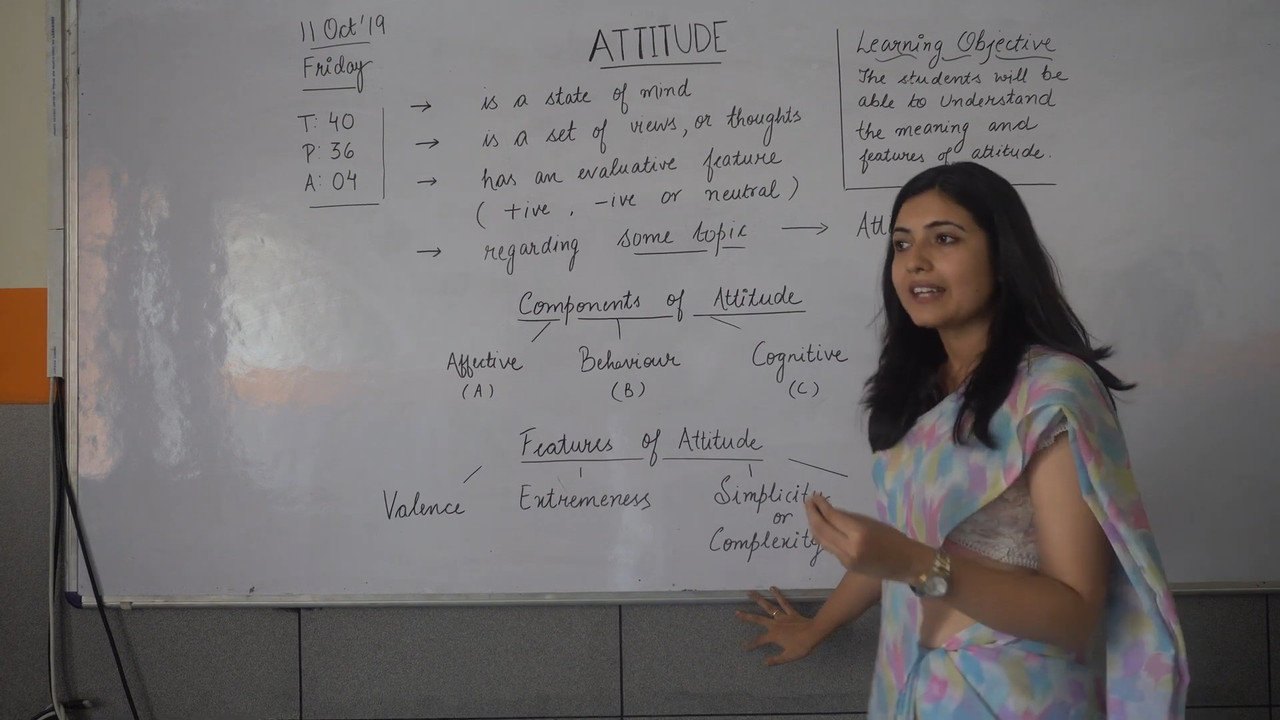 11 Oct'19
Friday
T: 40
P: 36
A: 04
ATTITUDE
→ is a state of mind
→ is a set of views, or thoughts
→ has an evaluative feature
( +ive, -ive or neutral )
→ regarding some topic →
Learning Objective
The students will be
able to understand
the meaning and
features of attitude.
Components of Attitude
Affective
(A)
Behaviour
(B)
Cognitive
(C)
Features of Attitude
Valence
Extremeness
Simplicity
or
Complexity